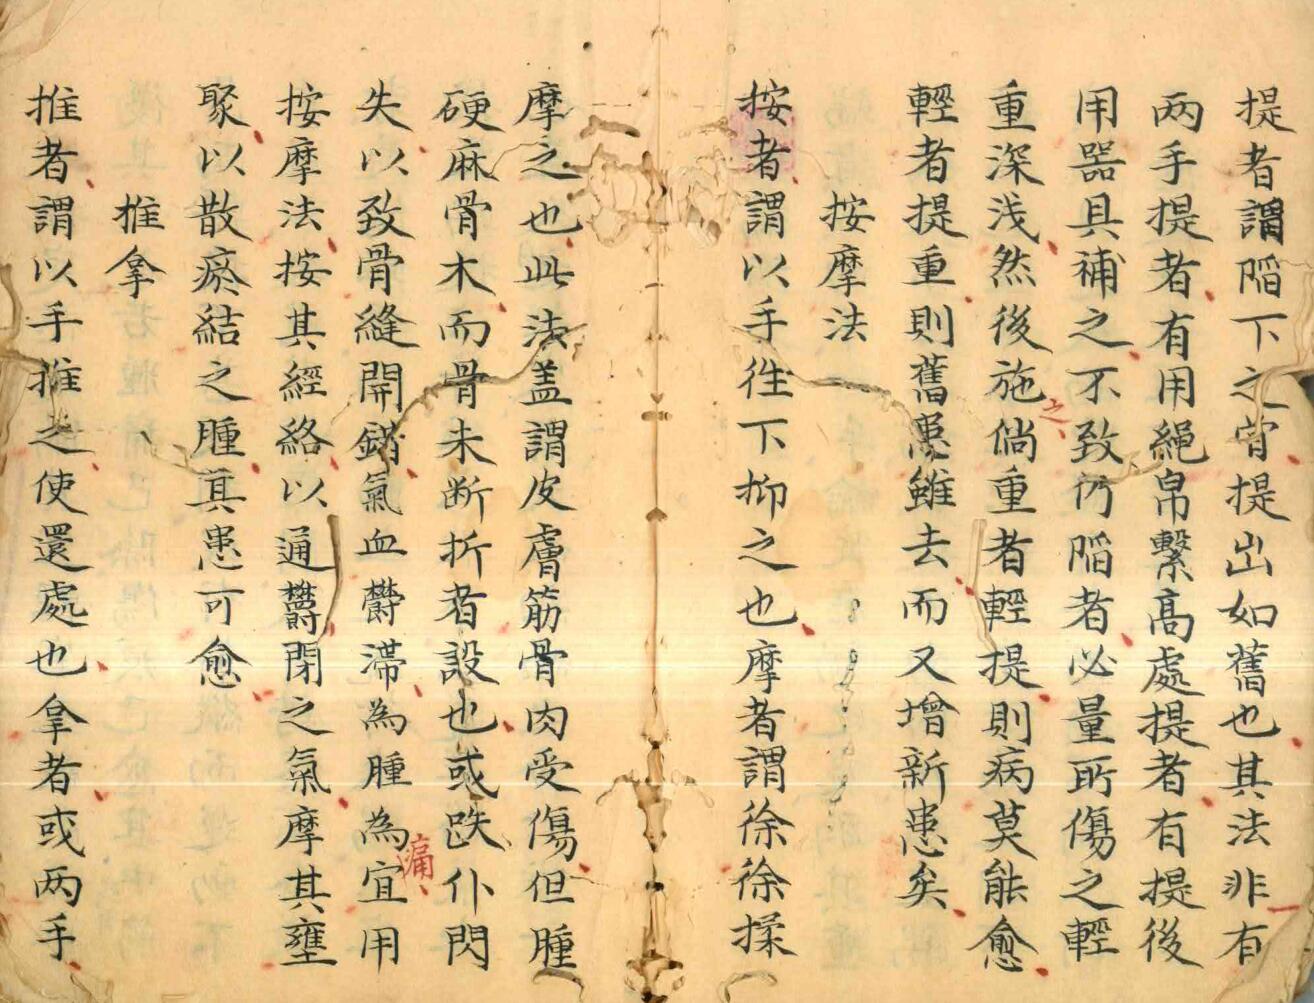 提者謂陷下之骨提出如舊也其法非有
两手提者有用繩帛繫高處提者有提後
用器具補之不致仍陷者必量所傷之輕
重深浅然後施之倘重者輕提則病莫能愈
輕者提重則舊患雖去而又增新患矣
按摩法
按者謂以手徃下抑之也摩者謂徐徐揉
摩之也此法盖謂皮膚筋骨肉受傷但腫
硬麻骨木而骨未断折者設也或跌仆閃
失以致骨縫開錯氣血欝滯為腫為痛宜用
按摩法按其經絡以通欝閉之氣摩其壅
聚以散瘀結之腫其患可愈
推拿
推者謂以手推之使還處也拿者或两手